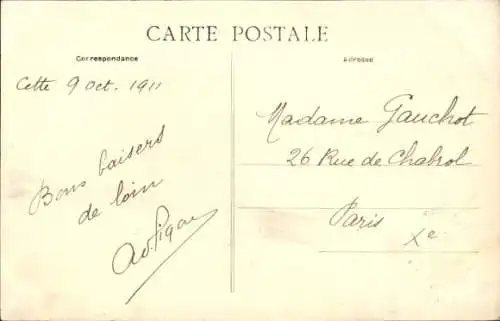 CARTE POSTALE
Correspondance
Adresse
Cette 9 Oct. 1911
Bons baisers
de loin
Madame Gauchot
26 Rue de Chabrol
Paris
Xe